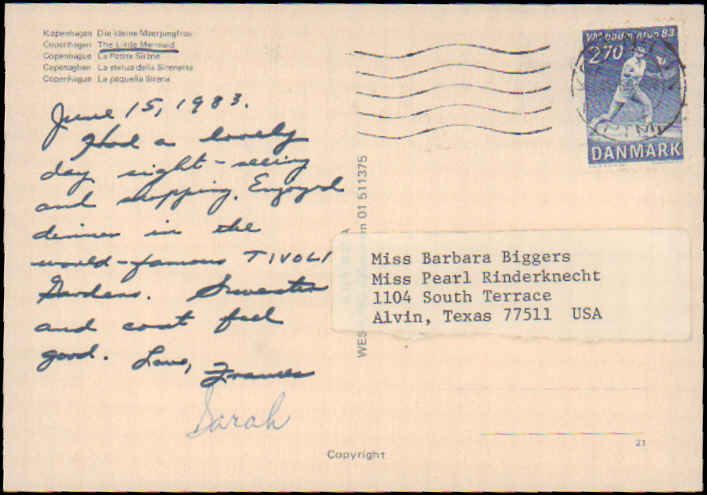 Kopenhagen Die kleine Meerjungfrau
Copenhagen The Little Mermaid
Copenhague La Petite Sirène
Copenaghen La statua della Sirenetta
Copenhague La pequeña Sirena
June 15, 1983.
Had a lovely
day sight-seeing
and shopping. Enjoyed
dinner in the
world-famous TIVOLI
Gardens. Sweater
and coat feel
good. Love, Frances
Sarah
Copyright
01 511375
WES
VM badminton 83
270
DANMARK
Miss Barbara Biggers
Miss Pearl Rinderknecht
1104 South Terrace
Alvin, Texas 77511 USA
21